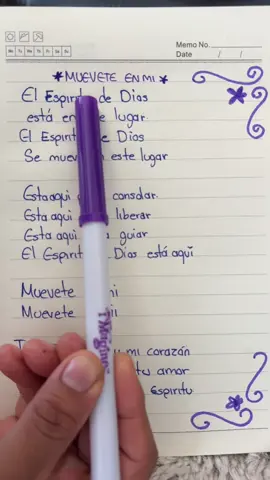 Memo No.
Date / /
Mo Tu We Th Fr Sa Su
*MUEVETE EN MI*
El Espiritu de Dios
está en e lugar
El Espirit e Dios
Se muev n este lugar
Esta aqui consolar
Esta aqui liberar
Esta aqui guiar
El Espirit Dios está aquí
Muevete mi
Muevete
y mi corazón
tu amor
Espiritu
Magimax